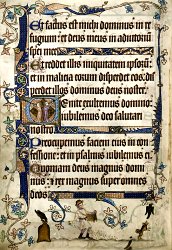 Et factus est michi dominus in re
fugium: et deus meus in adiutoriū
spei mee
Et reddet illis iniquitatem ipsorū:
et in malicia eorum disperdet eos: dis
perdet illos dominus deus noster.
Venite exultemus domino:
iubilemus deo salutari
nostro:
Preocupemus faciem eius in con
fessione: et in psalmis iubilemus ei.
Quoniam deus magnus domi
nus: et rex magnus super omnes
deos